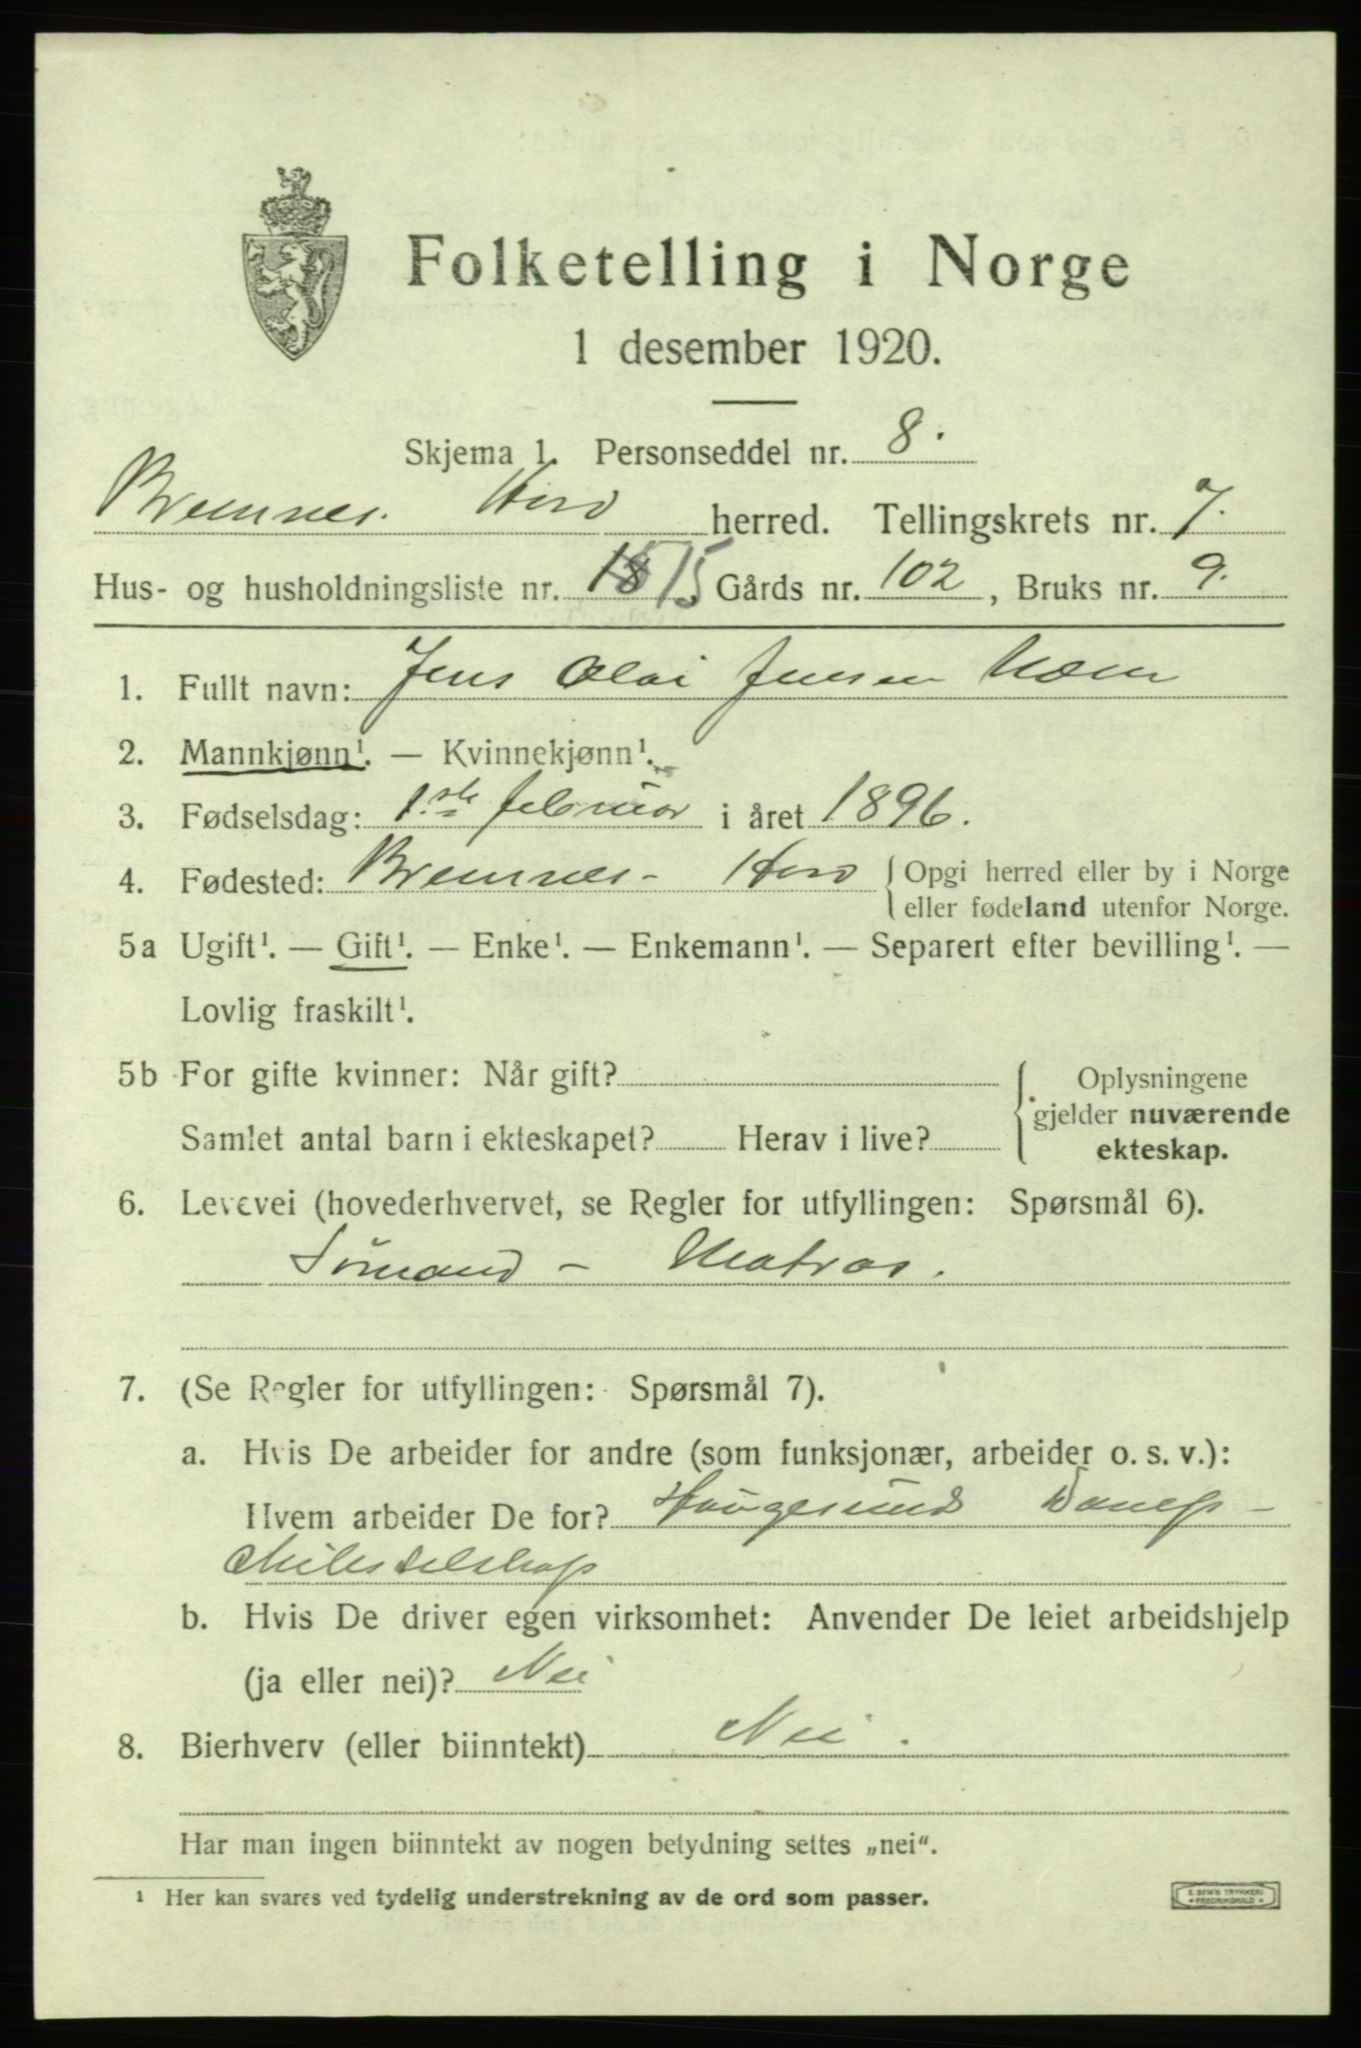 Folketelling i Norge
1 desember 1920.
Skjema 1. Personseddel nr. 8.
Bremnes. Hord herred. Tellingskrets nr. 7.
Hus- og husholdningsliste nr. 15 Gårds nr. 102, Bruks nr. 9.
1. Fullt navn: Jens Olai Jensen
2. Mannkjønn¹. — Kvinnekjønn¹.
3. Fødselsdag: 1.ste februar i året 1896.
4. Fødested: Bremnes - Hord { Opgi herred eller by i Norge
eller fødeland utenfor Norge.
5a Ugift¹. — Gift¹. — Enke¹. — Enkemann¹. — Separert efter bevilling¹. —
Lovlig fraskilt¹.
5b For gifte kvinner: Når gift? { Oplysningene
gjelder nuværende
Samlet antal barn i ekteskapet? Herav i live?
ekteskap.
6. Levevei (hovederhvervet, se Regler for utfyllingen: Spørsmål 6).
Sömand - Matros.
7. (Se Regler for utfyllingen: Spørsmål 7).
a. Hvis De arbeider for andre (som funksjonær, arbeider o. s. v.):
Hvem arbeider De for? Haugesund Damps-
b. Hvis De driver egen virksomhet: Anvender De leiet arbeidshjelp
(ja eller nei)? Nei
8. Bierhverv (eller biinntekt) Nei.
Har man ingen biinntekt av nogen betydning settes „nei“.
¹ Her kan svares ved tydelig understrekning av de ord som passer.
E. SEM'S TRYKKERI
FREDRIKSHALD